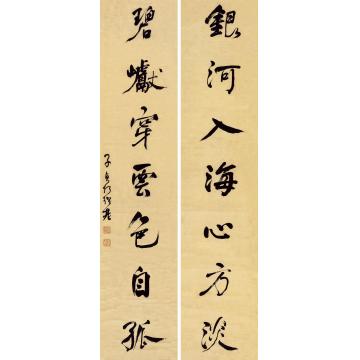 銀河入海心方淡
碧巘穿雲色自孤
子貞何紹基